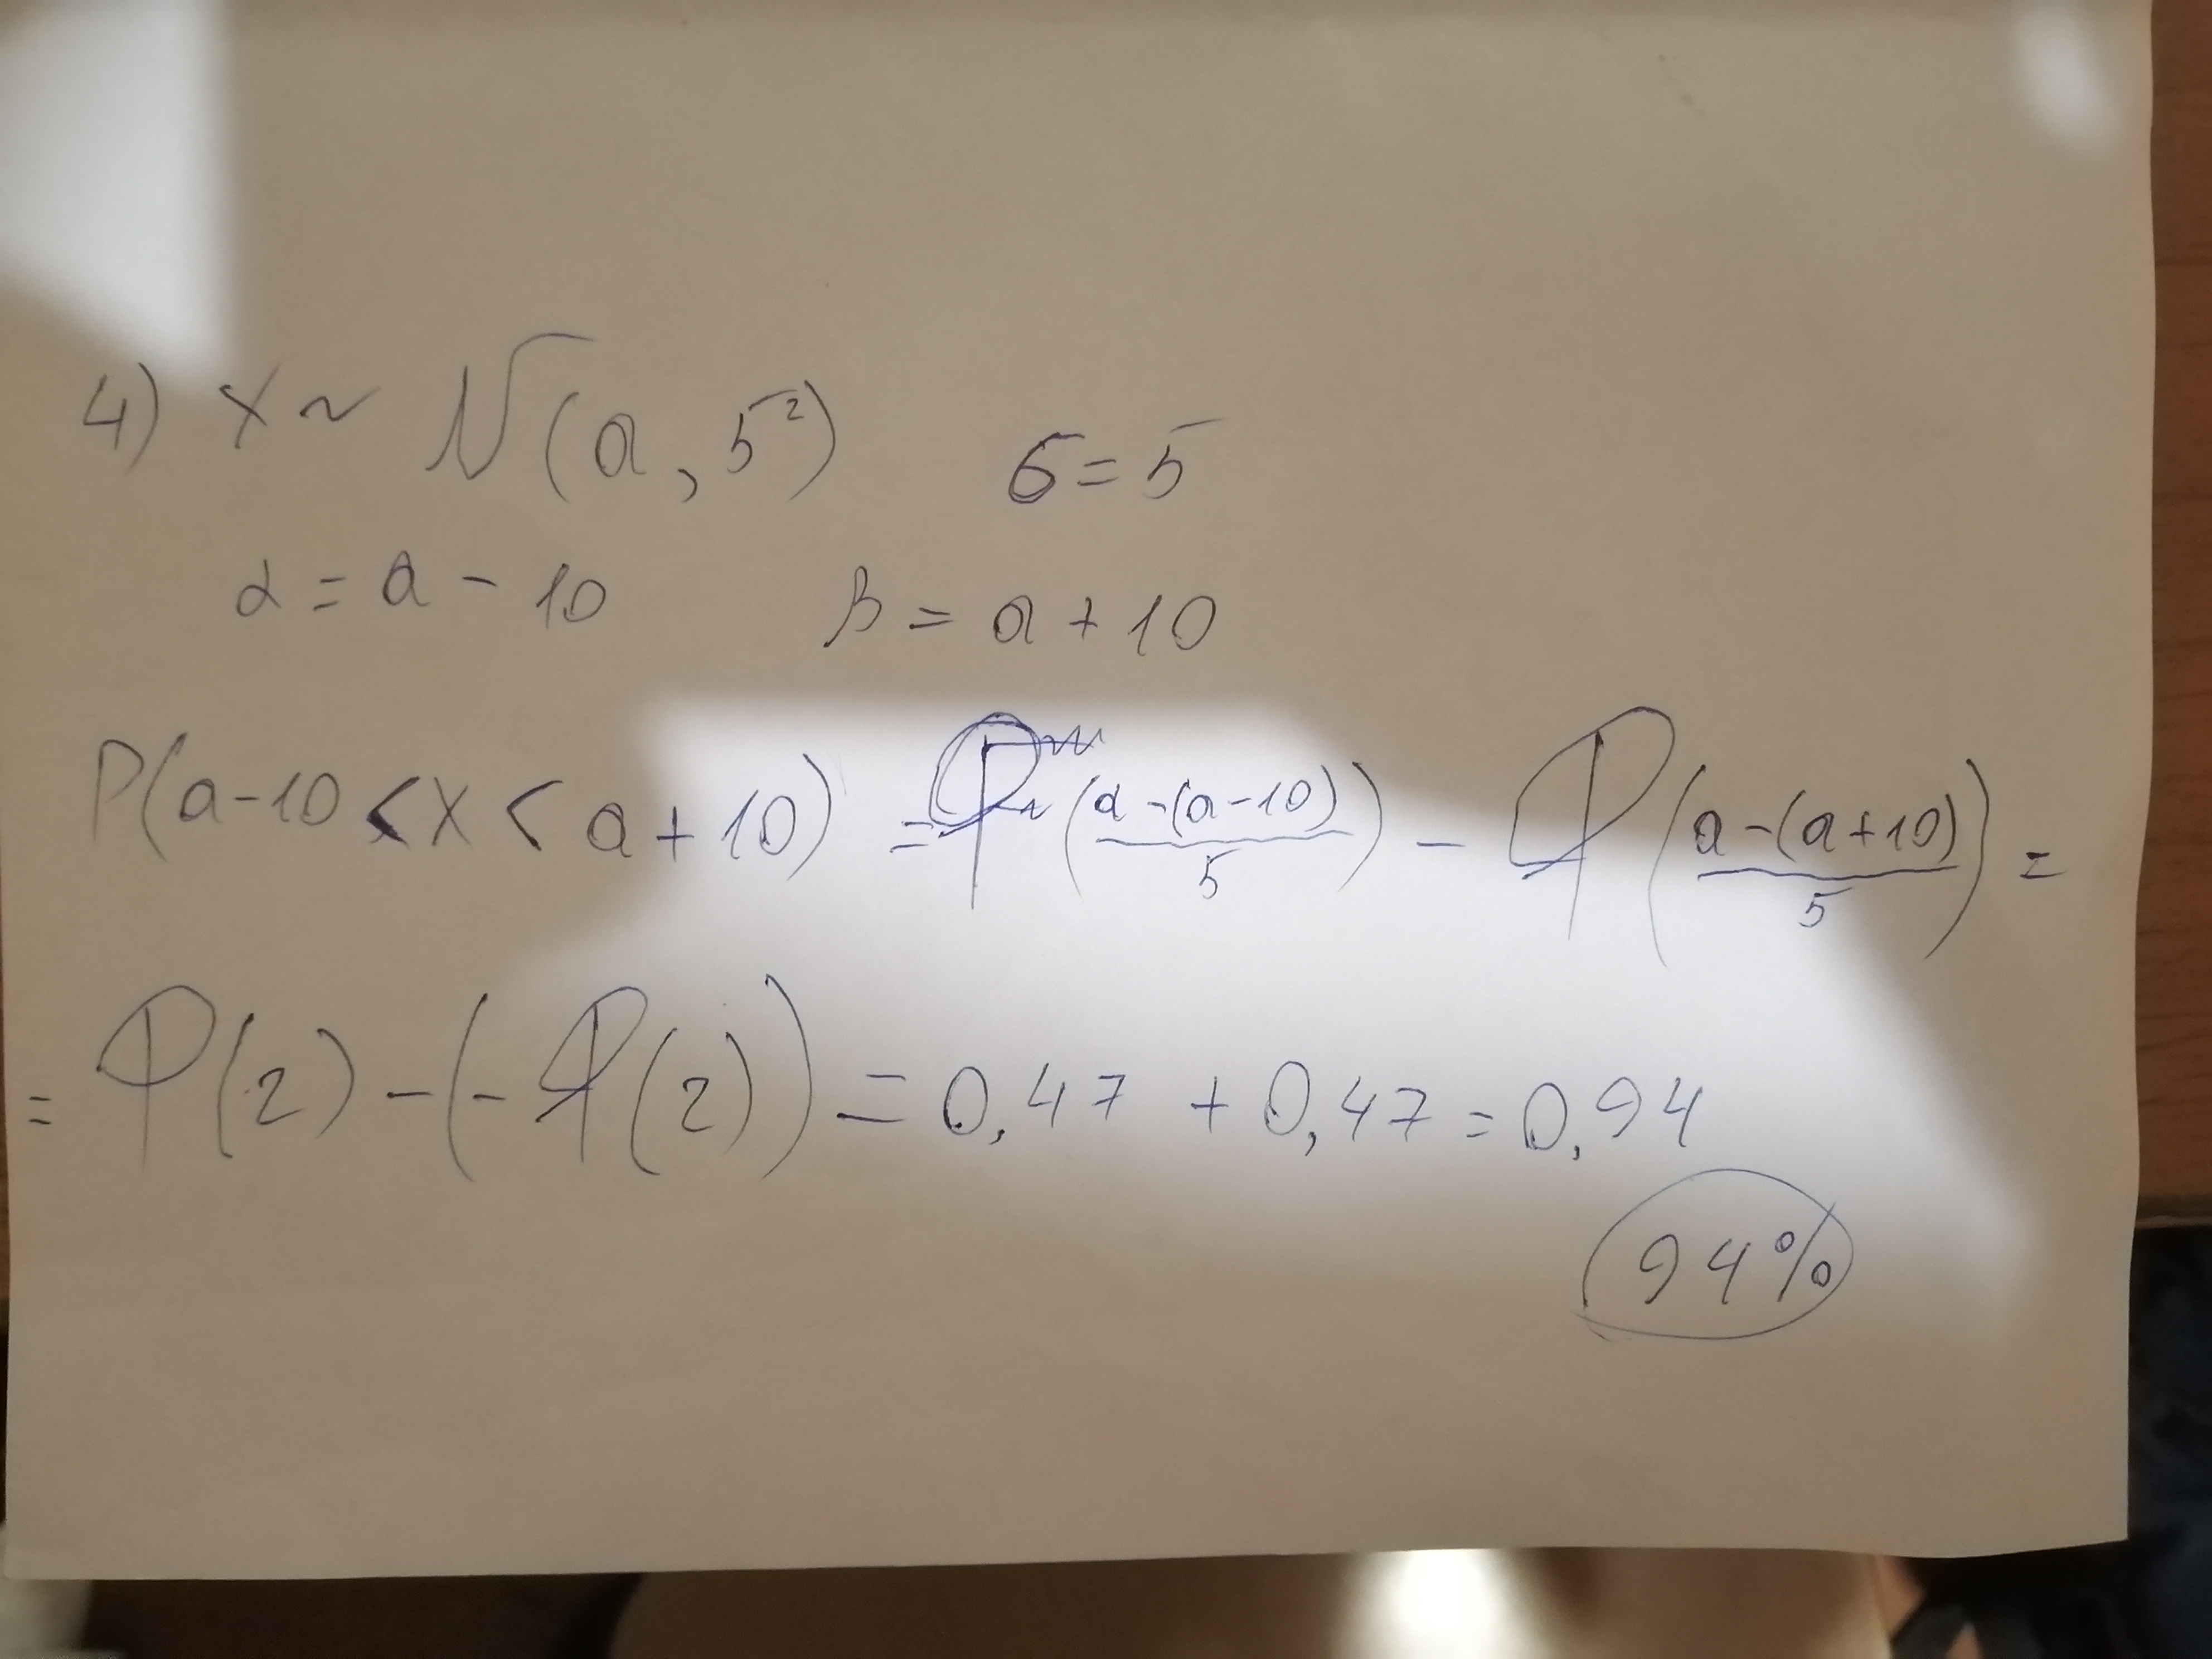 4) X ~ N(a, 5²) σ = 5
α = a - 10 β = a + 10
P(a-10 < X < a + 10) = Φ((a-(a-10))/5) - Φ((a-(a+10))/5) =
= Φ(2) - (-Φ(2)) = 0,47 + 0,47 = 0,94
94%